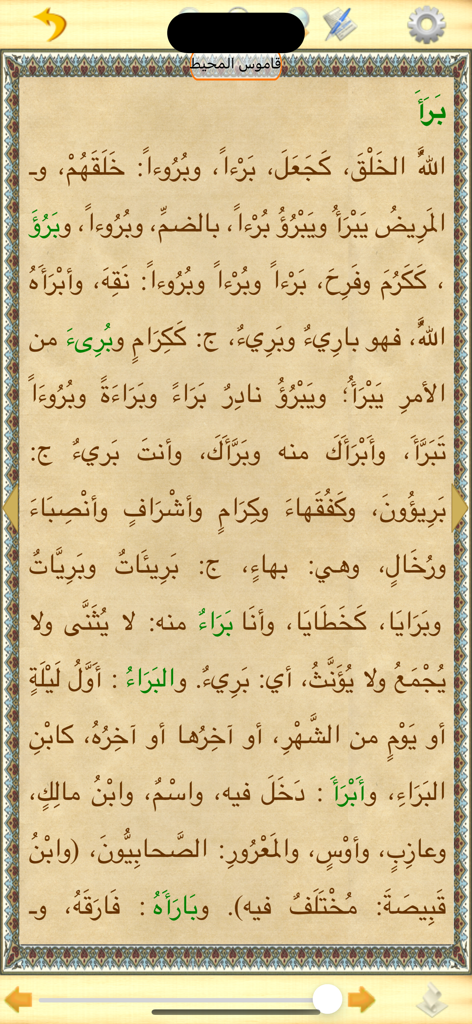 قاموس المحيط
بَرَأَ
اللّهُ الخَلْقَ، كَجَعَلَ، بَرْءاً، وبُرُوءاً: خَلَقَهُمْ، وـ
المَرِيضُ يَبْرَأُ ويَبْرُؤُ بُرْءاً، بالضمِّ، وبُرُوءاً، وبَرُؤَ
، كَكَرُمَ وفَرِحَ، بَرْءاً وبُرْءاً وبُرُوءاً: نَقِهَ، وأبْرَأَهُ
اللّهُ، فهو بارِيءٌ وبَرِيءٌ، ج: كَكِرَامٍ وبُرِىءَ من
الأمرِ يَبْرَأُ؛ ويَبْرُؤُ نادِرٌ بَرَاءً وبَرَاءَةً وبُرُوءَاً
تَبَرَّأَ، وأَبْرَأَكَ منه وبَرَّأَكَ، وأنتَ بَريءٌ ج:
بَرِيؤُونَ، وكَفُقَهاءَ وكِرَامٍ وأشْرَافٍ وأنْصِبَاءَ
ورُخَالٍ، وهي: بهاءٍ، ج: بَرِيئَاتٌ وبَرِيَّاتٌ
وبَرَايَا، كَخَطَايَا، وأنَا بَرَاءٌ منه: لا يُثَنَّى ولا
يُجْمَعُ ولا يُؤَنَّثُ، أي: بَرِيءٌ. والبَرَاءُ : أوَّلُ لَيْلَةٍ
أو يَوْمٍ من الشَّهْرِ، أو آخِرُها أو آخِرُهُ، كابْنِ
البَرَاءِ، وأَبْرَأَ : دَخَلَ فيه، واسْمٌ، وابْنُ مالِكٍ،
وعازِبٍ، وأوْسٍ، والمَعْرُورِ: الصَّحابِيُّونَ، (وابْنُ
قَبِيصَةَ: مُخْتَلَفٌ فيه). وبَارَأَهُ : فَارَقَهُ، وـ